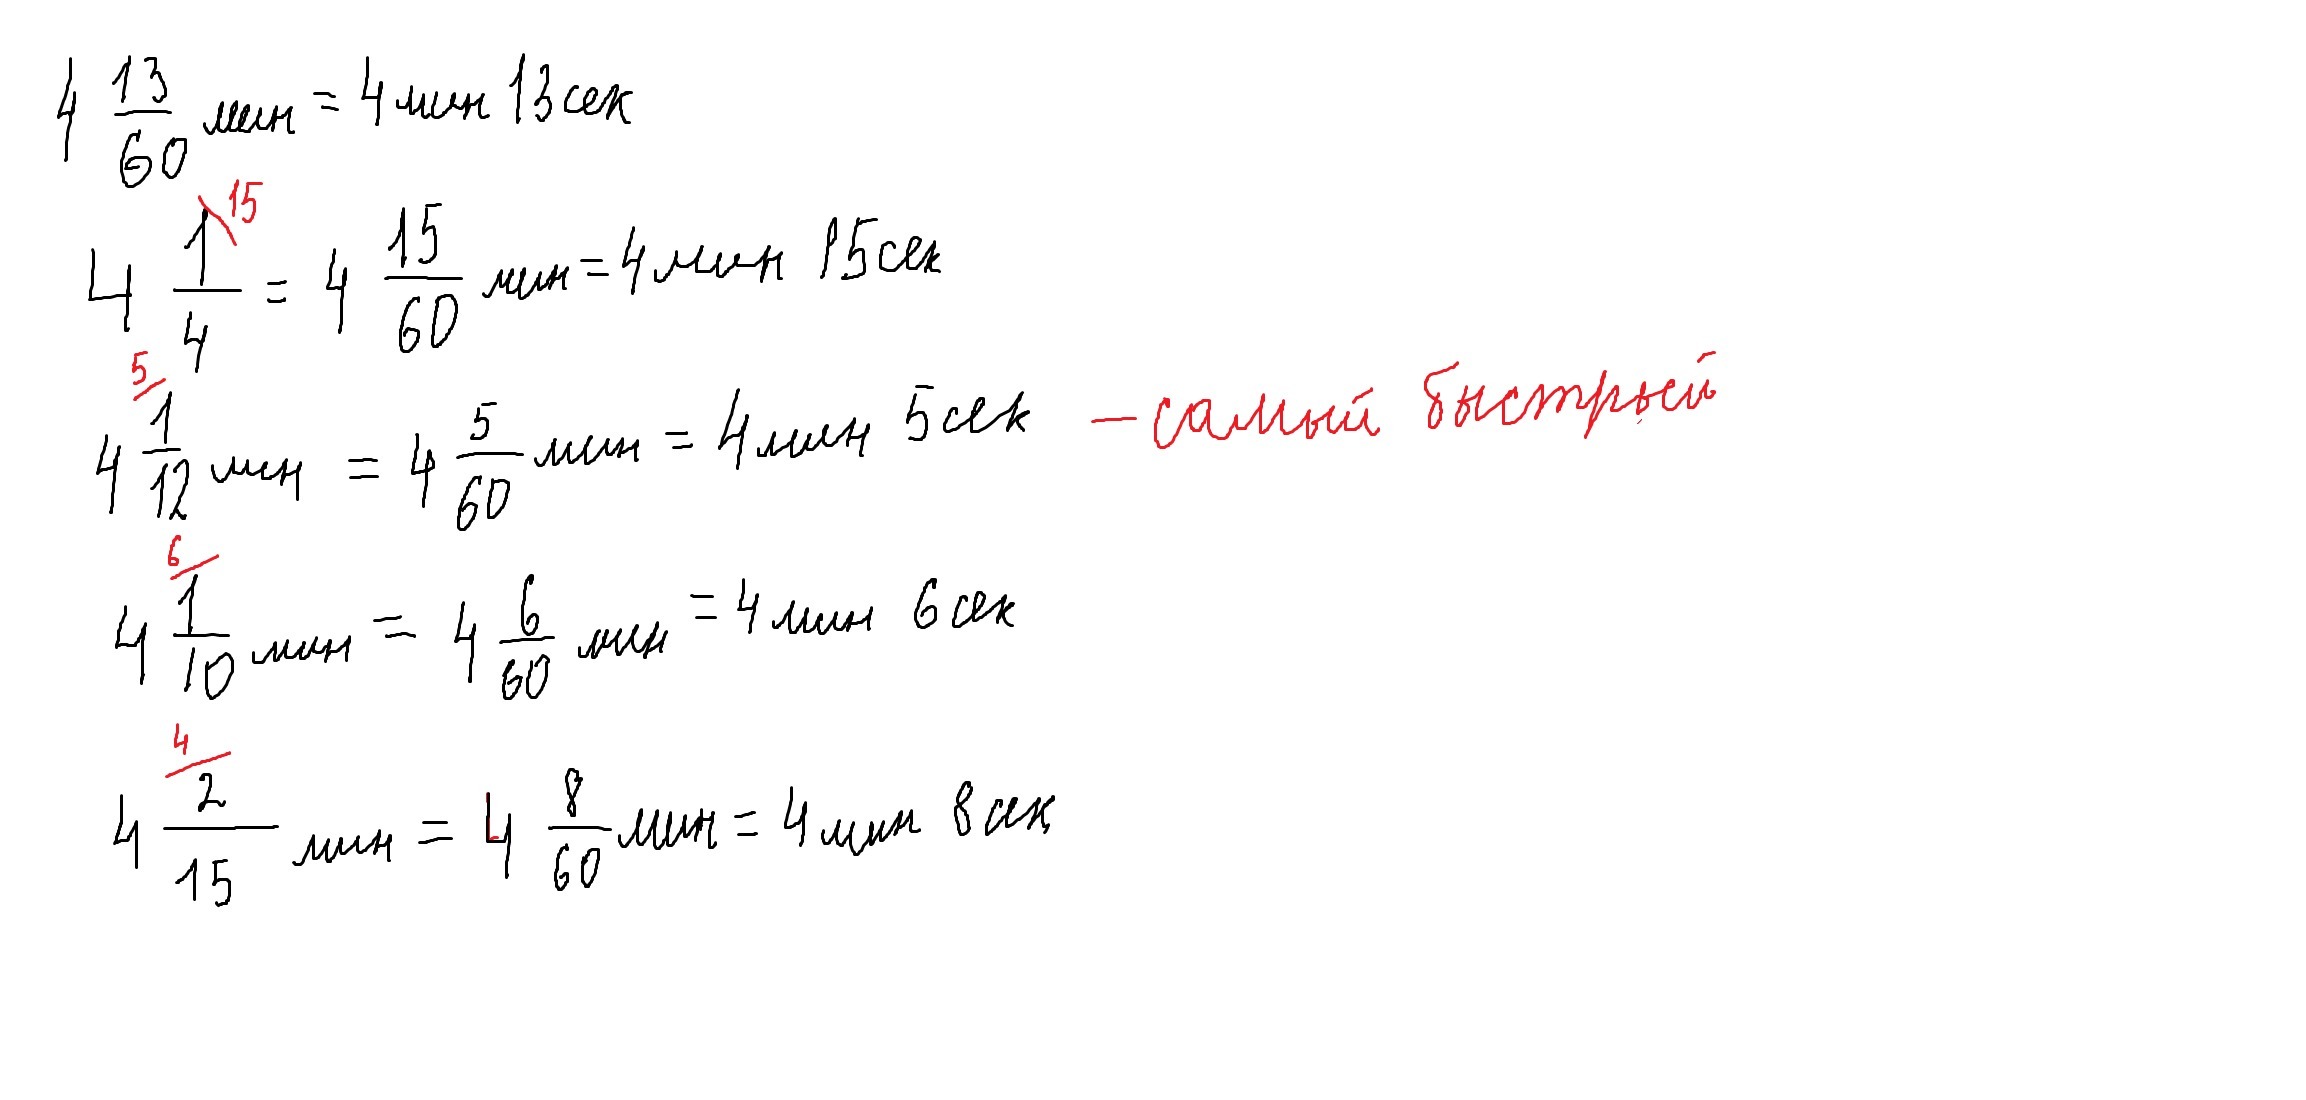 4 13/60 мин = 4 мин 13 сек
4 1/4 15 = 4 15/60 мин = 4 мин 15 сек
5
4 1/12 мин = 4 5/60 мин = 4 мин 5 сек - самый быстрый
6
4 1/10 мин = 4 6/60 мин = 4 мин 6 сек
4
4 2/15 мин = 4 8/60 мин = 4 мин 8 сек